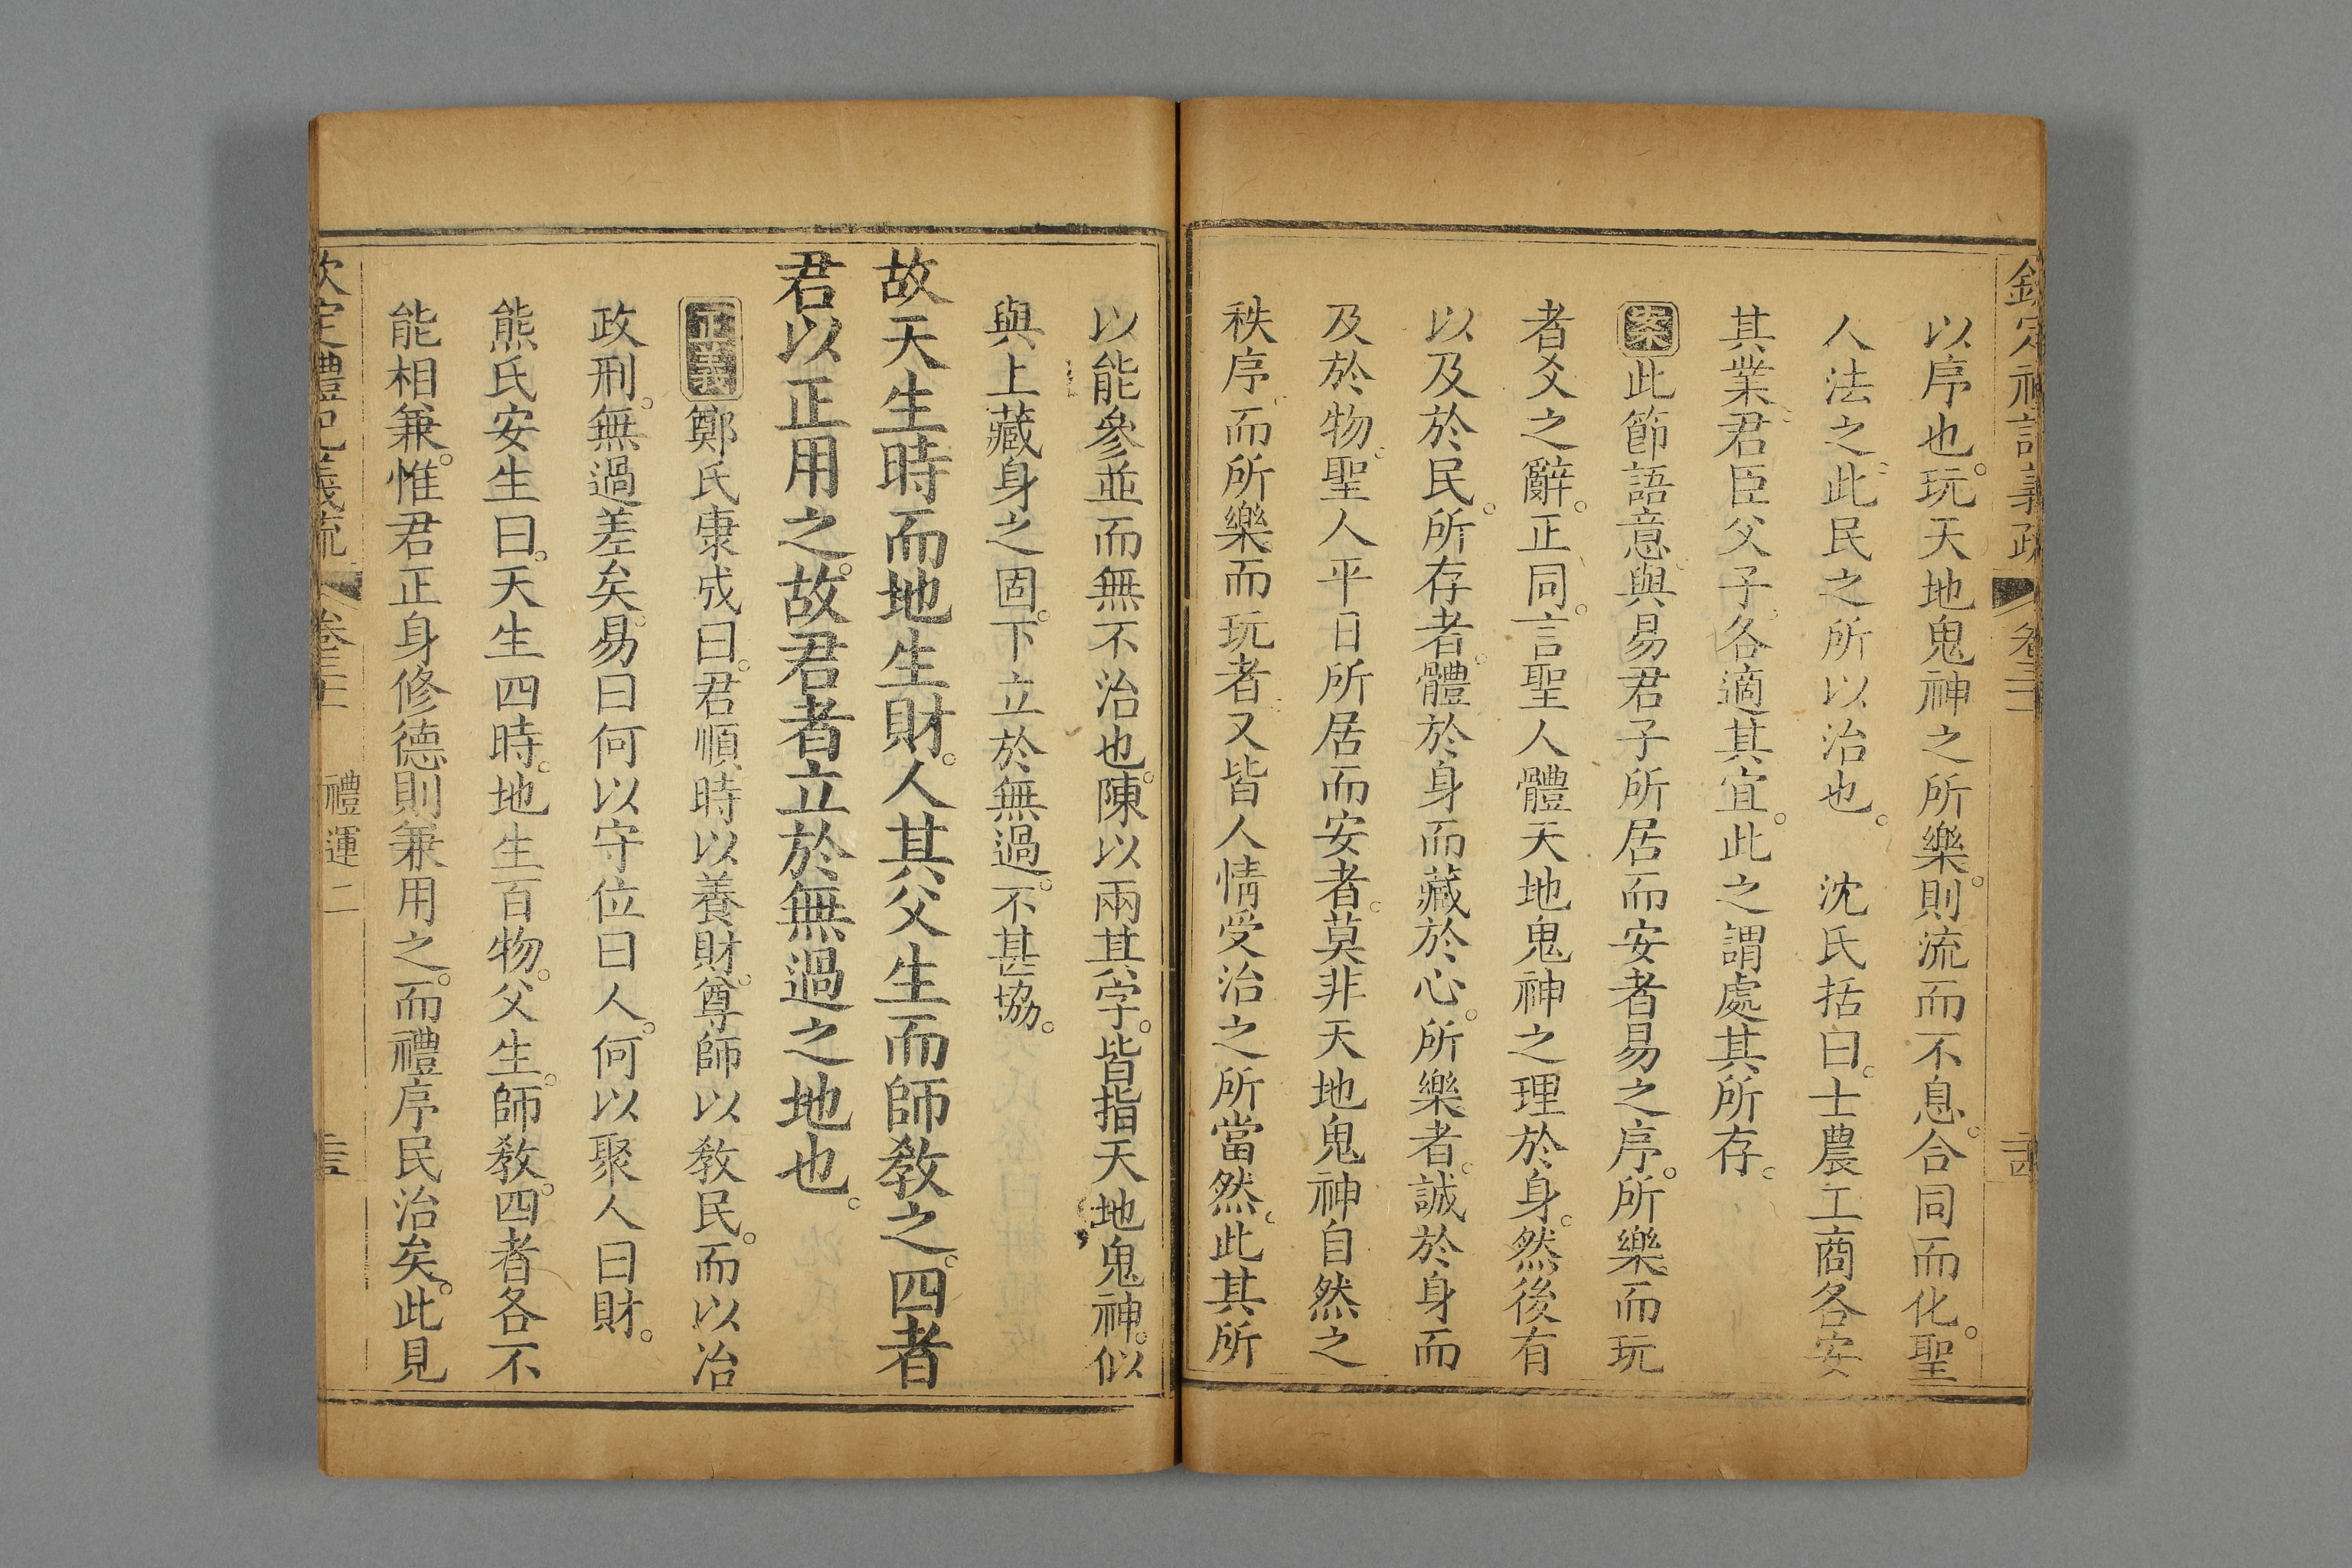 欽定禮記義疏 卷三十 禮運二
以序也。玩天地鬼神之所樂。則流而不息。合同而化。聖
人法之。此民之所以治也。 沈氏括曰。士農工商各安
其業。君臣父子。各適其宜。此之謂處其所存。
案此節語意。與易君子所居而安者易之序。所樂而玩
者爻之辭。正同。言聖人體天地鬼神之理於身。然後有
以及於民。所存者。體於身而藏於心。所樂者。誠於身而
及於物。聖人平日所居而安者。莫非天地鬼神自然之
秩序。而所樂而玩者。又皆人情受治之所當然。此其所
以能參並而無不治也。陳以兩其字。皆指天地鬼神。似
與上藏身之固。下立於無過。不甚協。
故天生時而地生財。人其父生而師教之。四者
君以正用之。故君者立於無過之地也。
正義鄭氏康成曰。君順時以養財。尊師以教民。而以治
政刑。無過差矣。易曰何以守位曰人。何以聚人曰財。
熊氏安生曰。天生四時。地生百物。父生。師教。四者各不
能相兼。惟君正身修德則兼用之。而禮序民治矣。此見
欽定禮記義疏 卷三十 禮運二